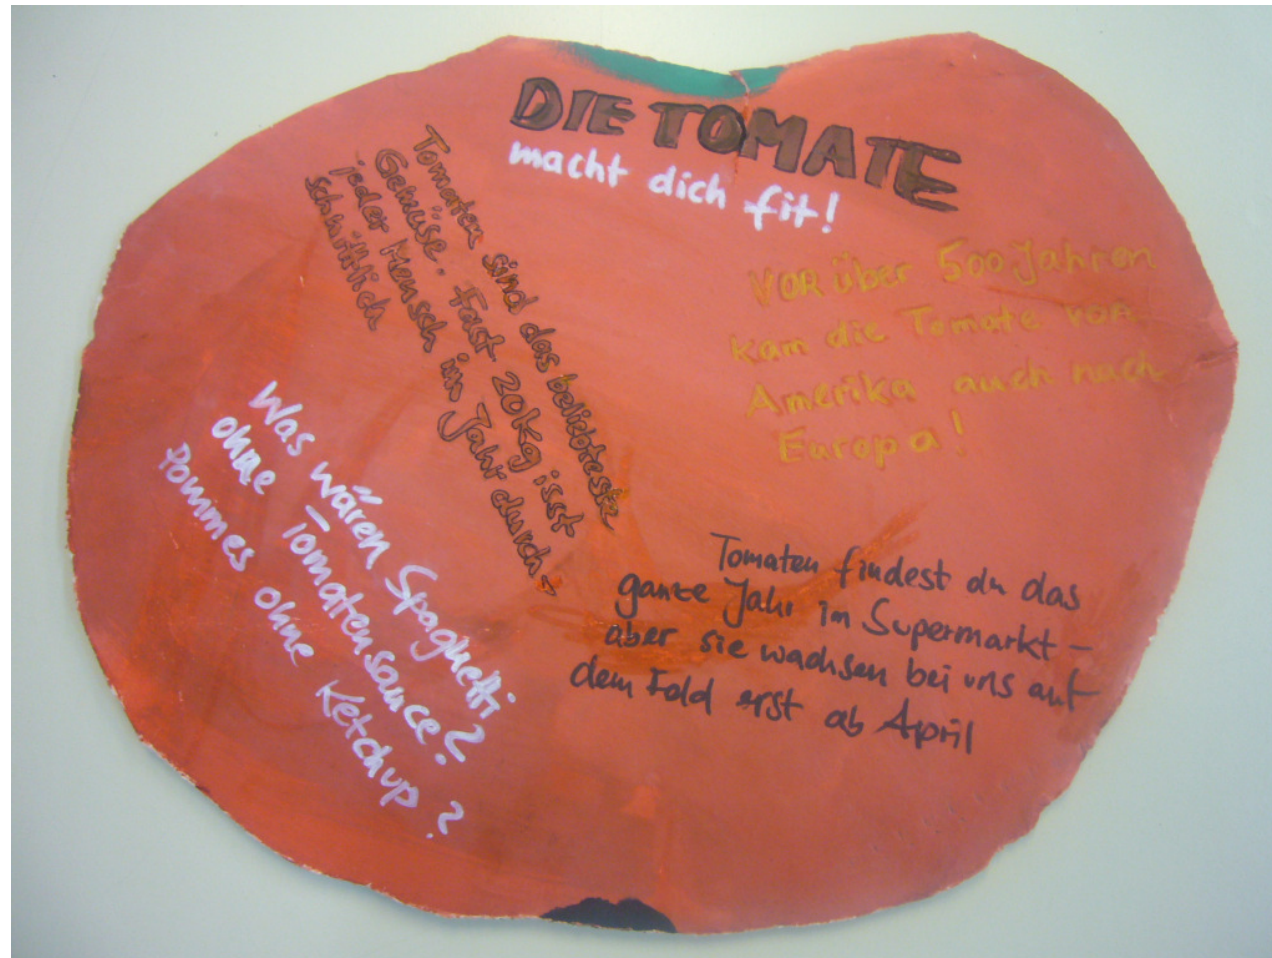 DIE TOMATE
macht dich fit!
Tomaten sind das beliebteste
Gemüse. Fast 20kg isst
jeder Mensch im Jahr durch-
schnittlich
VOR über 500 Jahren
kam die Tomate von
Amerika auch nach
Europa!
Was wären Spaghetti
ohne Tomatensauce?
Pommes ohne Ketchup?
Tomaten findest du das
ganze Jahr im Supermarkt –
aber sie wachsen bei uns auf
dem Feld erst ab April